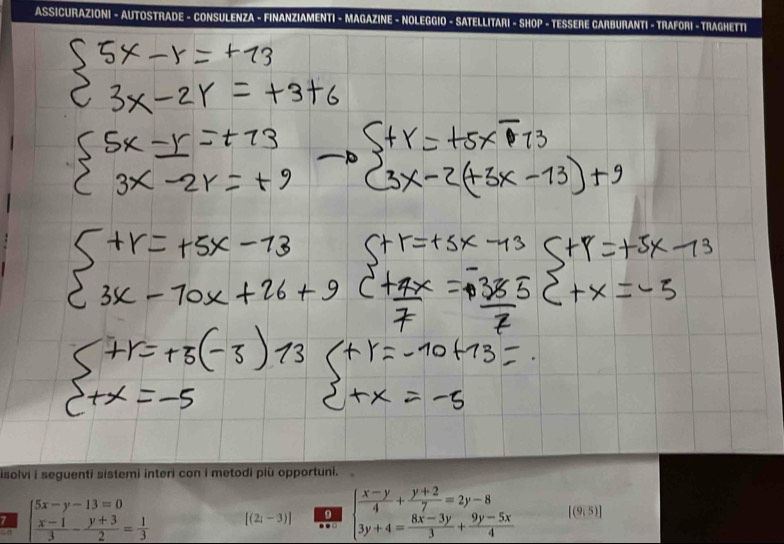 ASSICURAZIONI - AUTOSTRADE - CONSULENZA - FINANZIAMENTI - MAGAZINE - NOLEGGIO - SATELLITARI - SHOP - TESSERE CARBURANTI - TRAFORI - TRAGHETTI
{ 5x - y = +13
3x - 2y = +3+6
{ 5x - y = +13
3x - 2y = +9
→ { +y = +5x - 13
3x - 2(+3x - 13) + 9
{ +y = +5x - 13
3x - 10x + 26 + 9
{ +y = +5x - 13
+7x/7 = -35/7
{ +y = +5x - 13
+x = -5
{ +y = +5(-5) 13
+x = -5
{ +y = -10 + 13 = .
+x = -5
isolvi i seguenti sistemi interi con i metodi più opportuni.
7 { 5x - y - 13 = 0
(x - 1)/3 - (y + 3)/2 = 1/3
[(2; -3)]
9 { (x - y)/4 + (y + 2)/7 = 2y - 8
3y + 4 = (8x - 3y)/3 + (9y - 5x)/4
[(9; 5)]